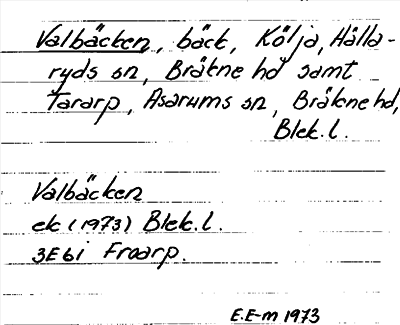 Valbäcken, bäck, Kölja, Hålla-
ryds sn, Bräkne hd samt
Tararp, Asarums sn, Bräkne hd,
Blek. l.
Valbäcken
ek (1973) Blek. l.
3E6i Froarp.
E.E-m 1973